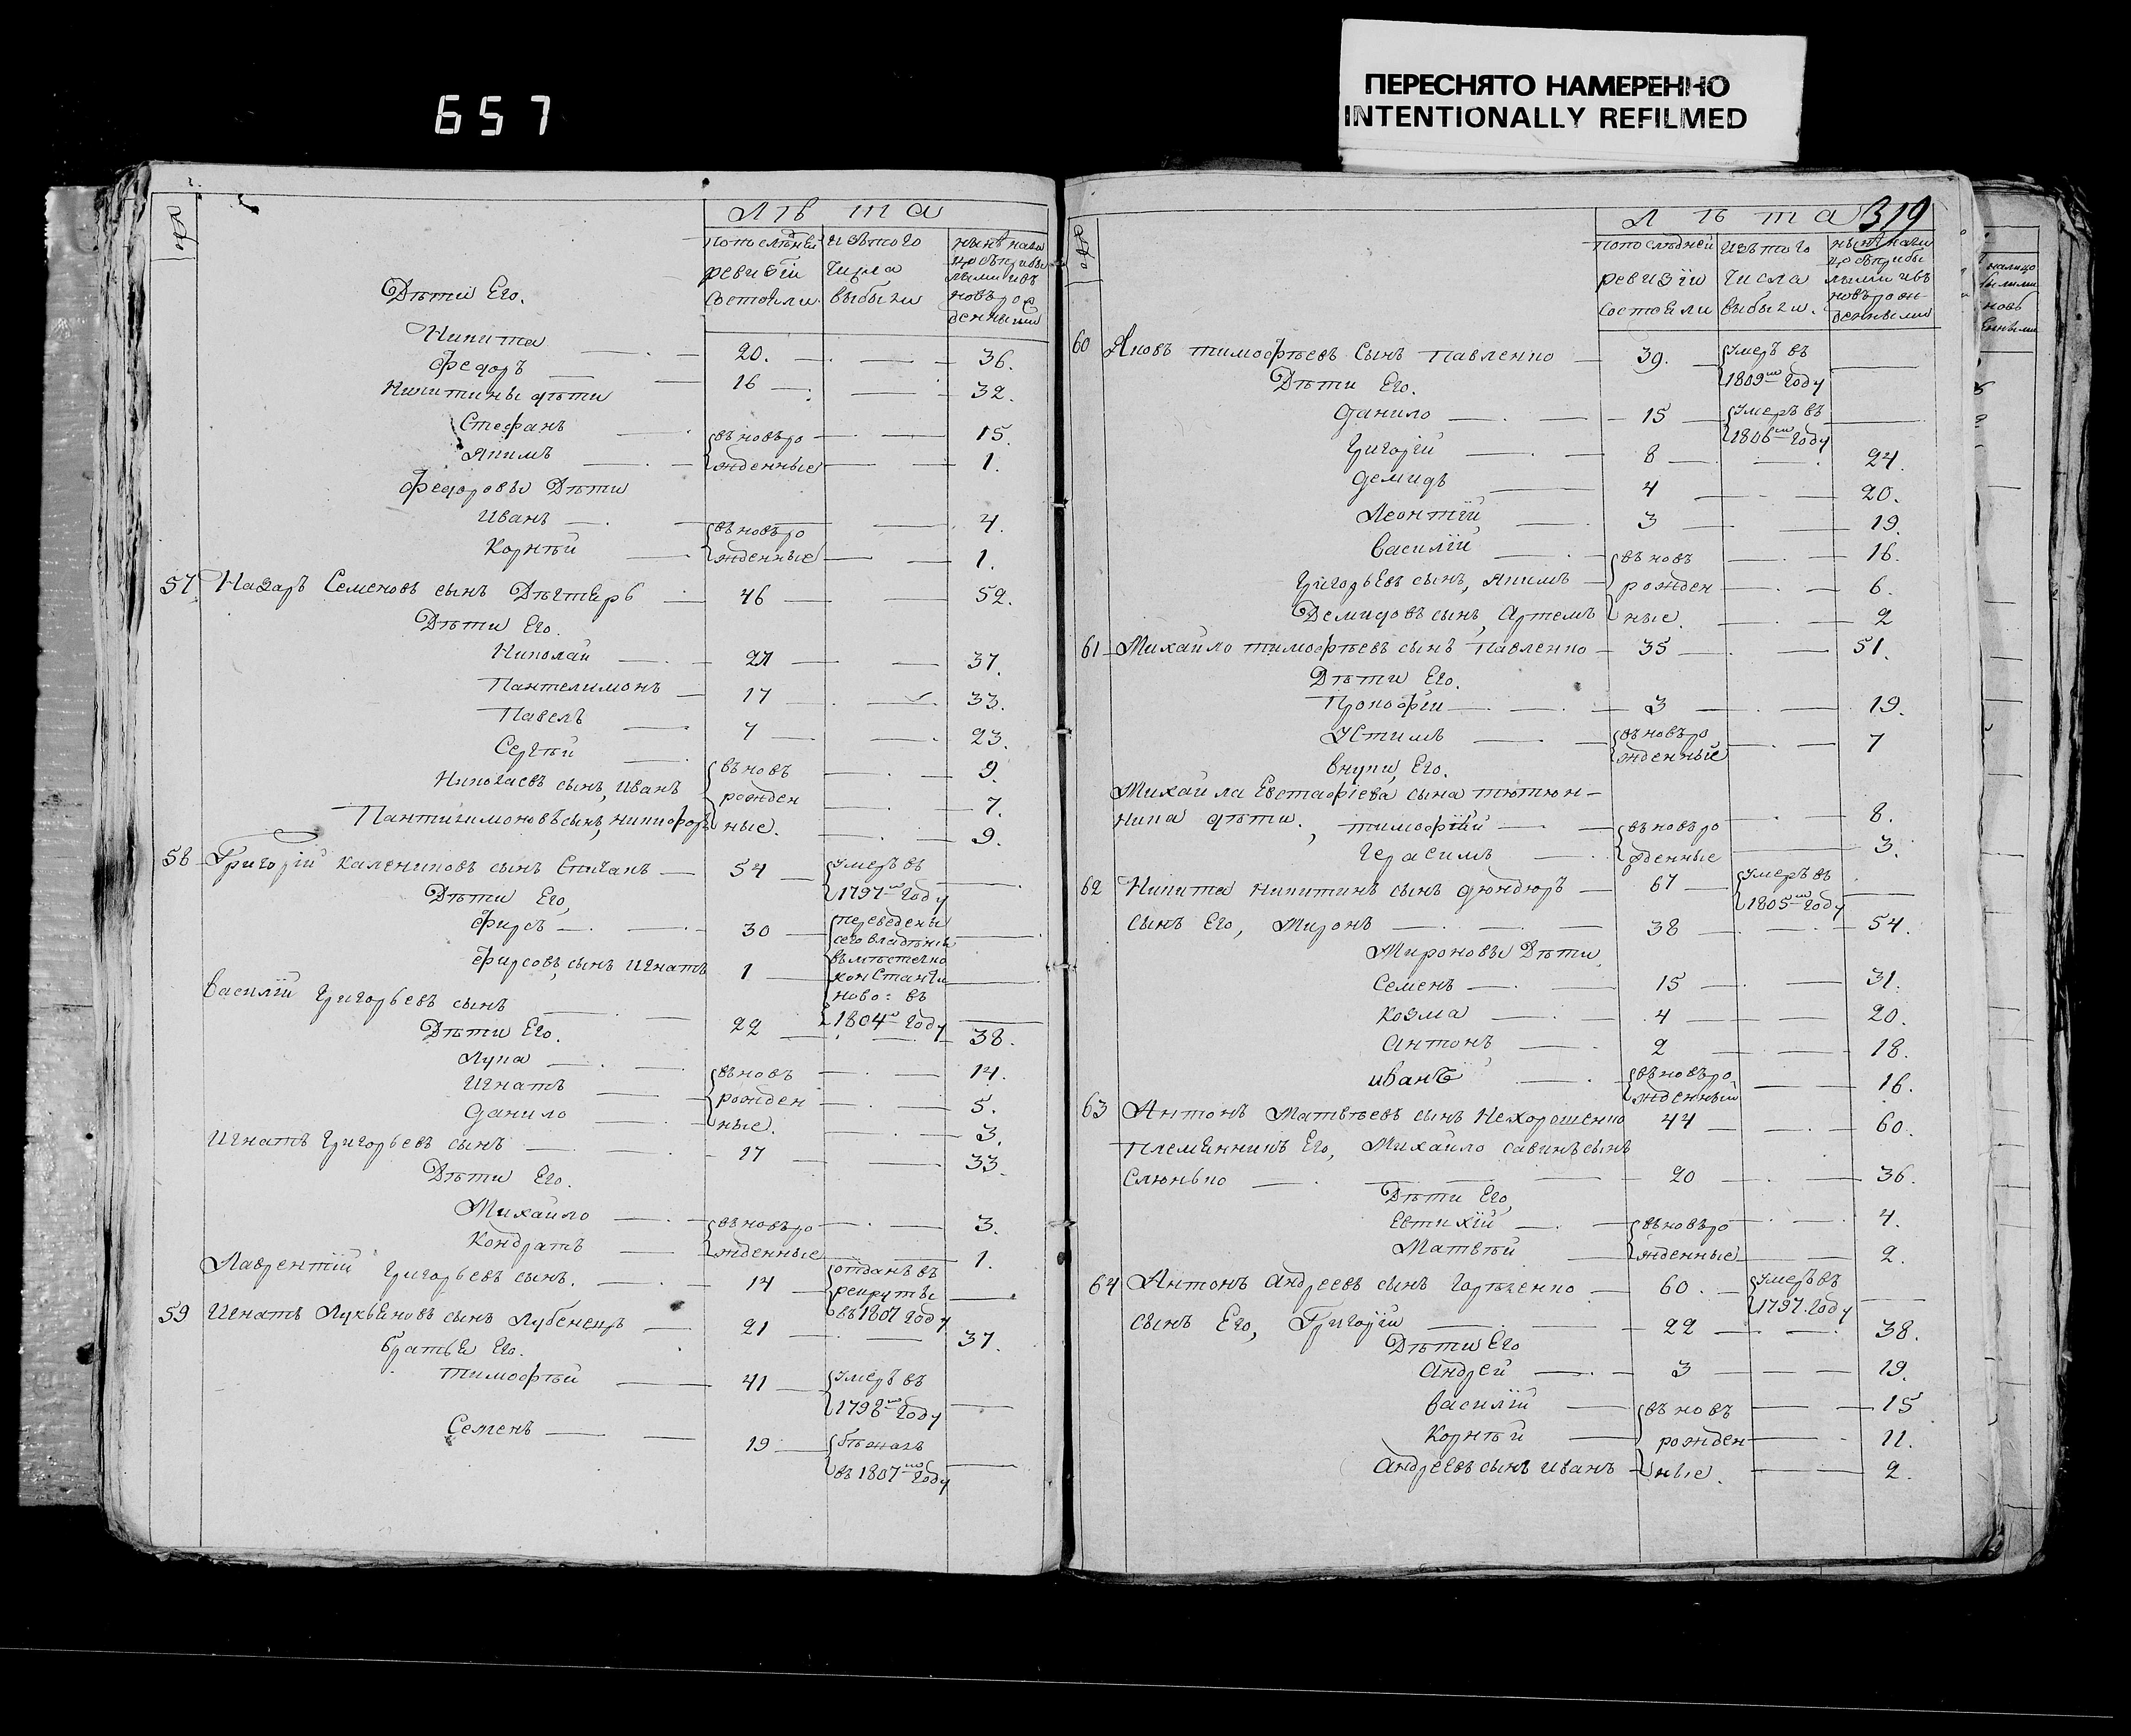 657
ПЕРЕСНЯТО НАМЕРЕННО
INTENTIONALLY REFILMED
Лѣта
ревизіи числа
состояли выбыли
Дѣти Его.
Никита 20. 36.
Федоръ 16 32.
Никитины дѣти
Стефанъ вновь ро 15.
Якимъ жденные 1.
Федоровы Дѣти
Иванъ вновь ро 4.
Корнѣй жденные 1.
57 Назаръ Семеновъ сынъ Дѣгтярь 46 52.
Дѣти Его.
Николай 21 37.
Пантелимонъ 17 33.
Павелъ 7 23.
Сергѣй вновь 9.
Николаевъ сынъ, Иванъ рожден 7.
Пантилимоновъ сынъ, Никифоръ ные. 9.
58 Григорій Калениковъ сынъ 54 Умеръ въ
1797го Году
Дѣти Его,
Фирсъ 30 переведены
Фирсовъ, сынъ Игнатъ 1 въ мѣстечко
Константи
ново: въ
1804 Году
Василій Григорьевъ сынъ 22 38.
Дѣти Его.
Лука вновь 14.
Игнатъ рожден 5.
Данило ные. 3.
Игнатъ Григорьевъ сынъ 17 33.
Дѣти Его.
Михайло вновь ро 3.
Кондратъ жденные 1.
Лаврентій Григорьевъ сынъ. 14 отданъ въ
рекруты
въ 1807 Году
59 Игнатъ Лукьяновъ сынъ Лубенецъ 21 37.
братья Его.
Тимофѣй 41 Умеръ въ
1798го Году
Семенъ 19 бѣжалъ
въ 1807мъ Году
Лѣта 319
попослѣдней изъ того
ревизіи числа
состояли выбыли.
60 Яковъ Тимофѣевъ Сынъ Павленко 39. Умеръ въ
1809го Году
Дѣти Его.
Данило 15 Умеръ въ
1806го Году
Григорій 8 24.
Демидъ 4 20.
Леонтій 3 19.
Василій вновь 16.
Григорьевъ сынъ, Якимъ рожден 6.
Демидовъ сынъ, Артемъ ные. 2
61 Михайло Тимофѣевъ сынъ Павленко 35 51.
Дѣти Его.
Прокофій 3 19.
Устимъ вновь ро 7
жденные
внуки, Его.
Михайла Евстафіева сына Тютюн-
ника дѣти, Тимофій вновь ро 8.
Герасимъ жденные 3.
62 Никита Никитинъ сынъ Дюндюръ 67 Умеръ въ
1805го Году
сынъ Его, Миронъ 38 54.
Мироновы Дѣти
Семенъ 15 31.
Козма 4 20.
Антонъ 2 18.
Иванъ вновь ро 16.
жденный
63 Антонъ Матвѣевъ сынъ Нехорошенко 44 60.
племянникъ Его, Михайло Савинъ сынъ
Слюнько 20 36.
Дѣти Его,
Евтихій вновь ро 4.
Матвѣй жденные 2.
64 Антонъ Андреевъ сынъ 60. Умеръ въ
1797. Году
сынъ Его, Григорій 22 38.
Дѣти Его
Андрей 3 19.
Василій вновь 15
Корнѣй рожден 11.
Андреевъ сынъ Иванъ ные. 2.